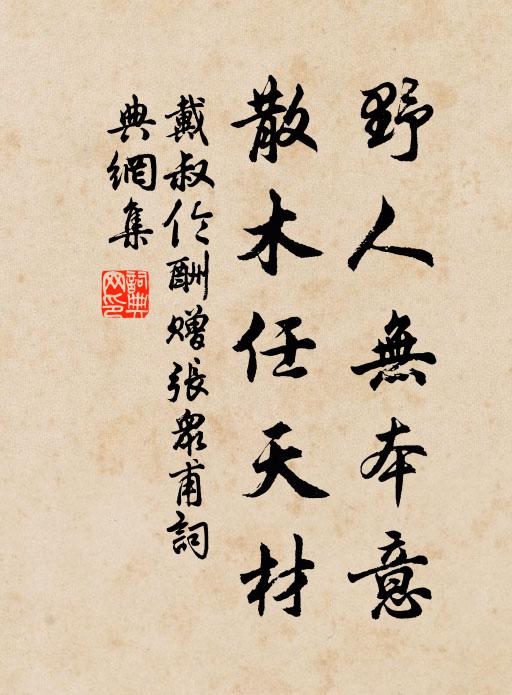 野人無本意
散木任天材
戴叔伦酬赠張眾甫詞
典網集
詞典网印